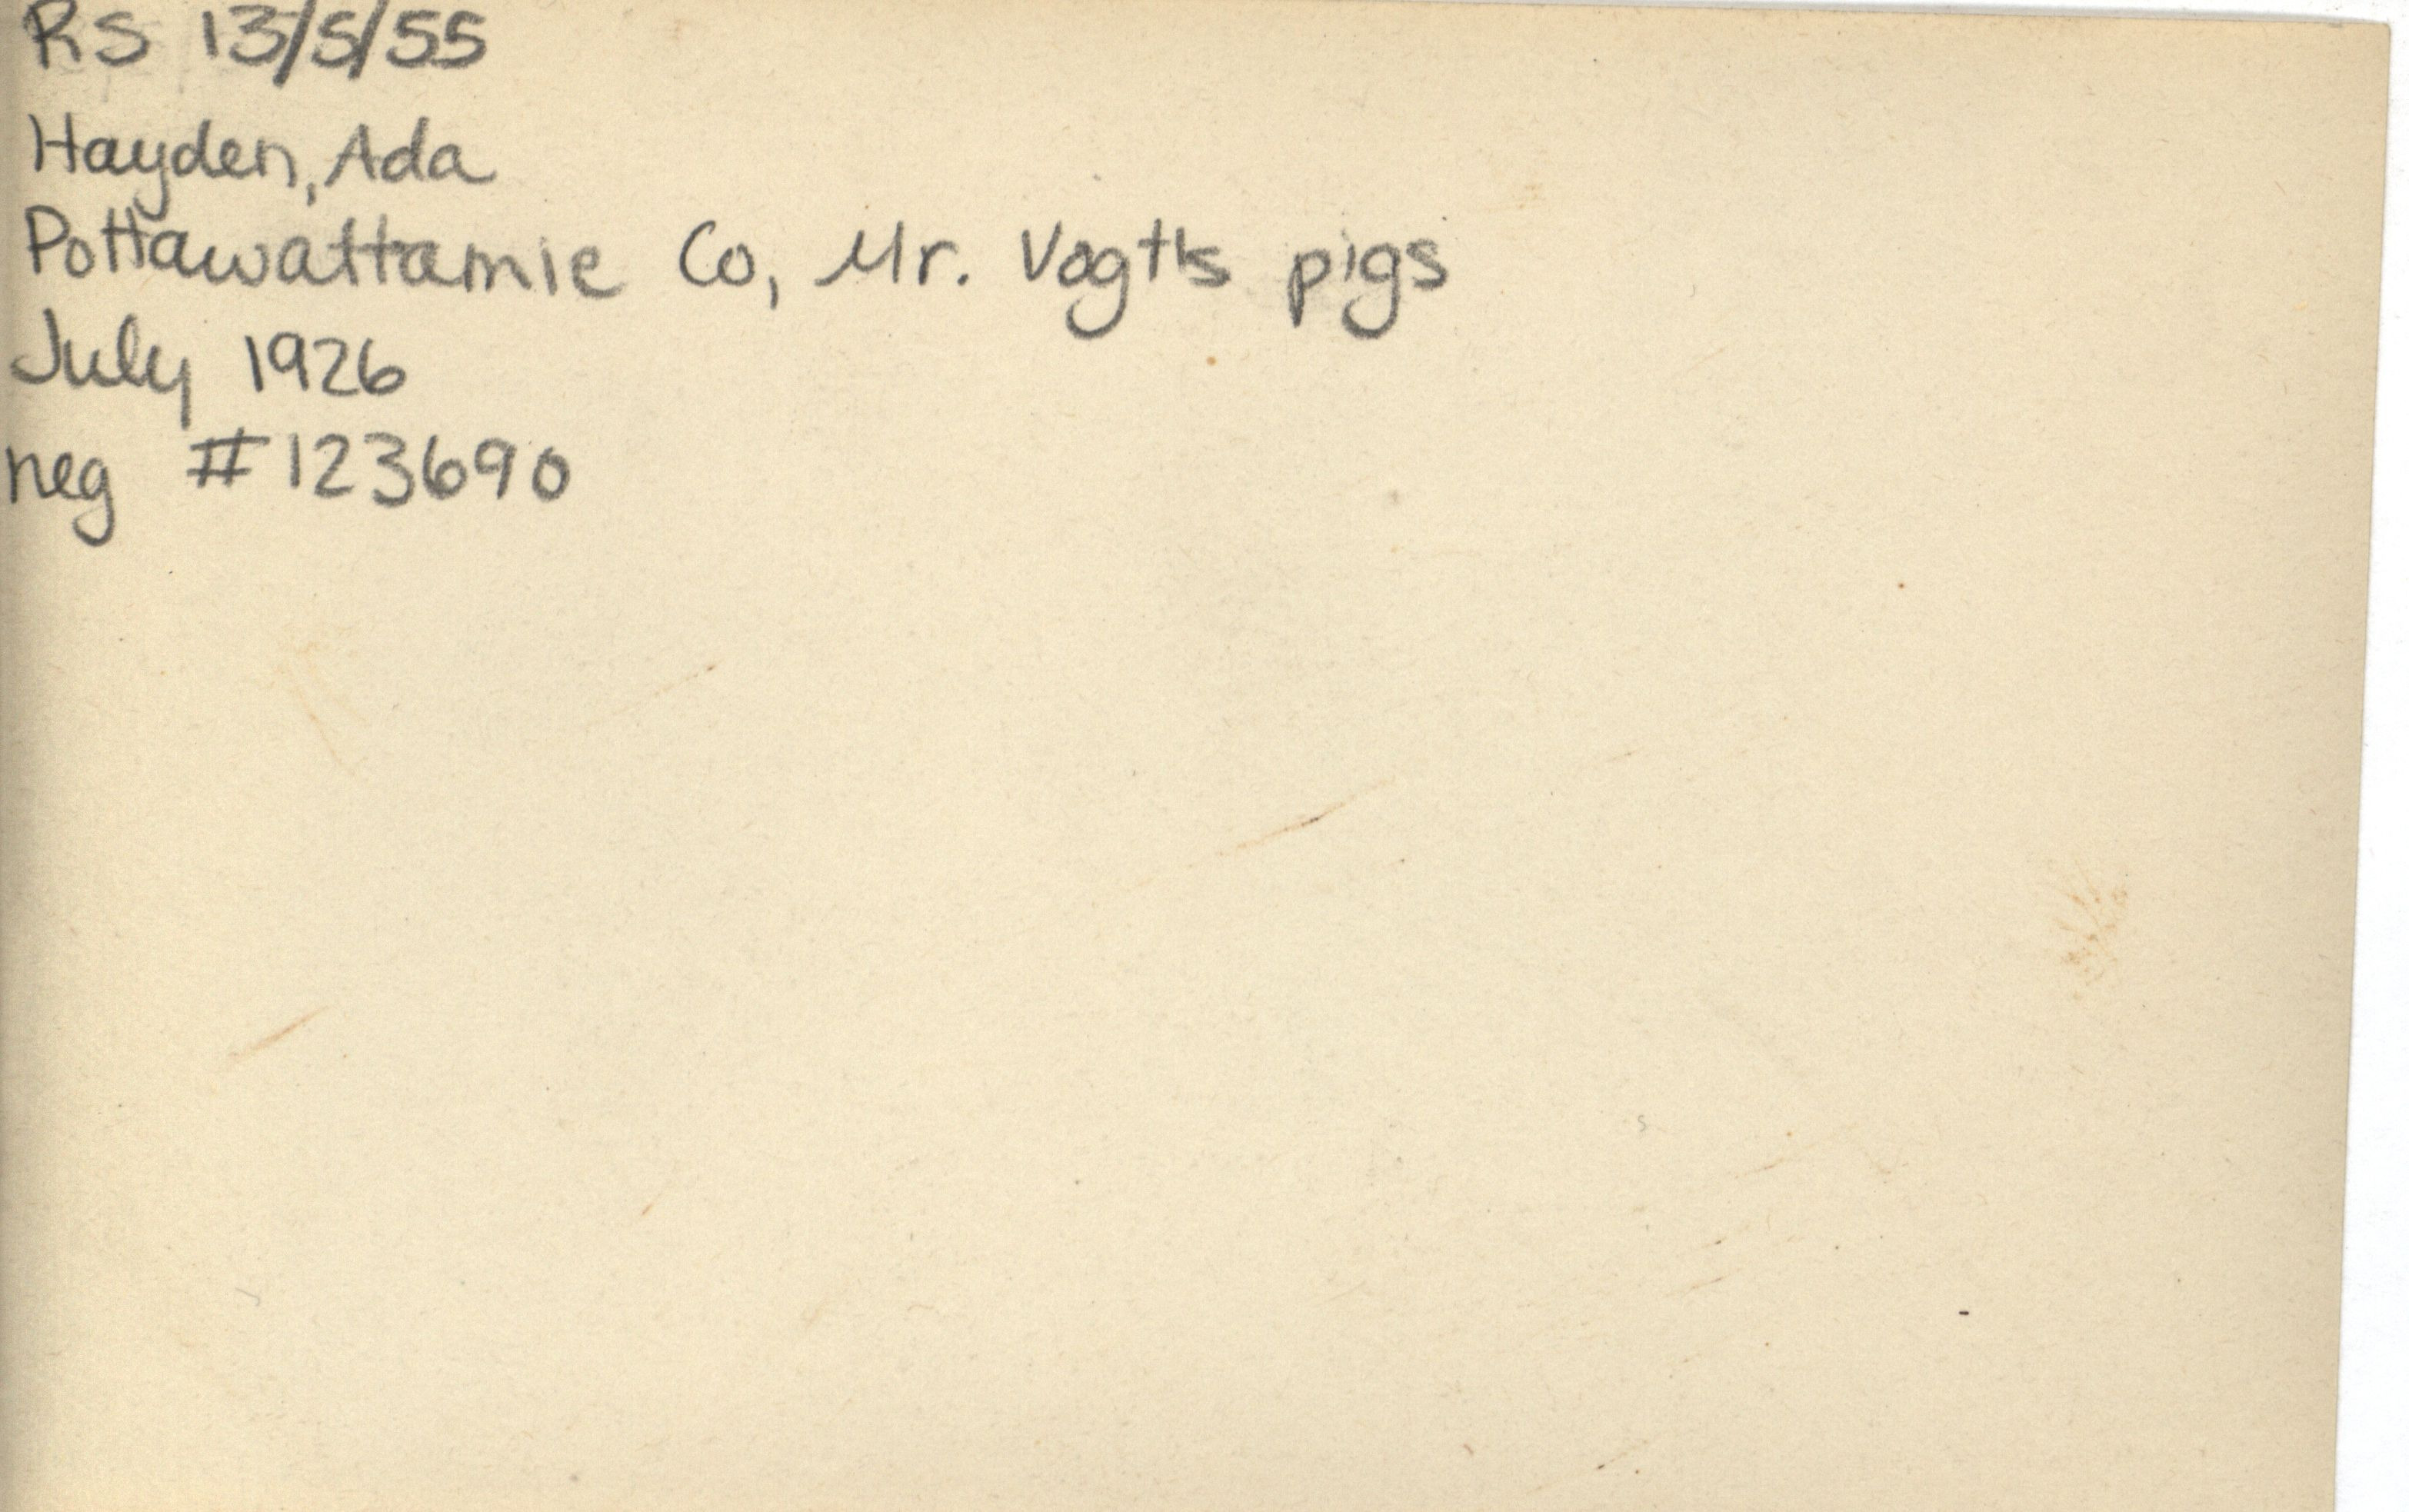 RS 13/5/55
Hayden, Ada
Pottawattamie Co, Mr. Vogt's pigs
July 1926
neg #123690